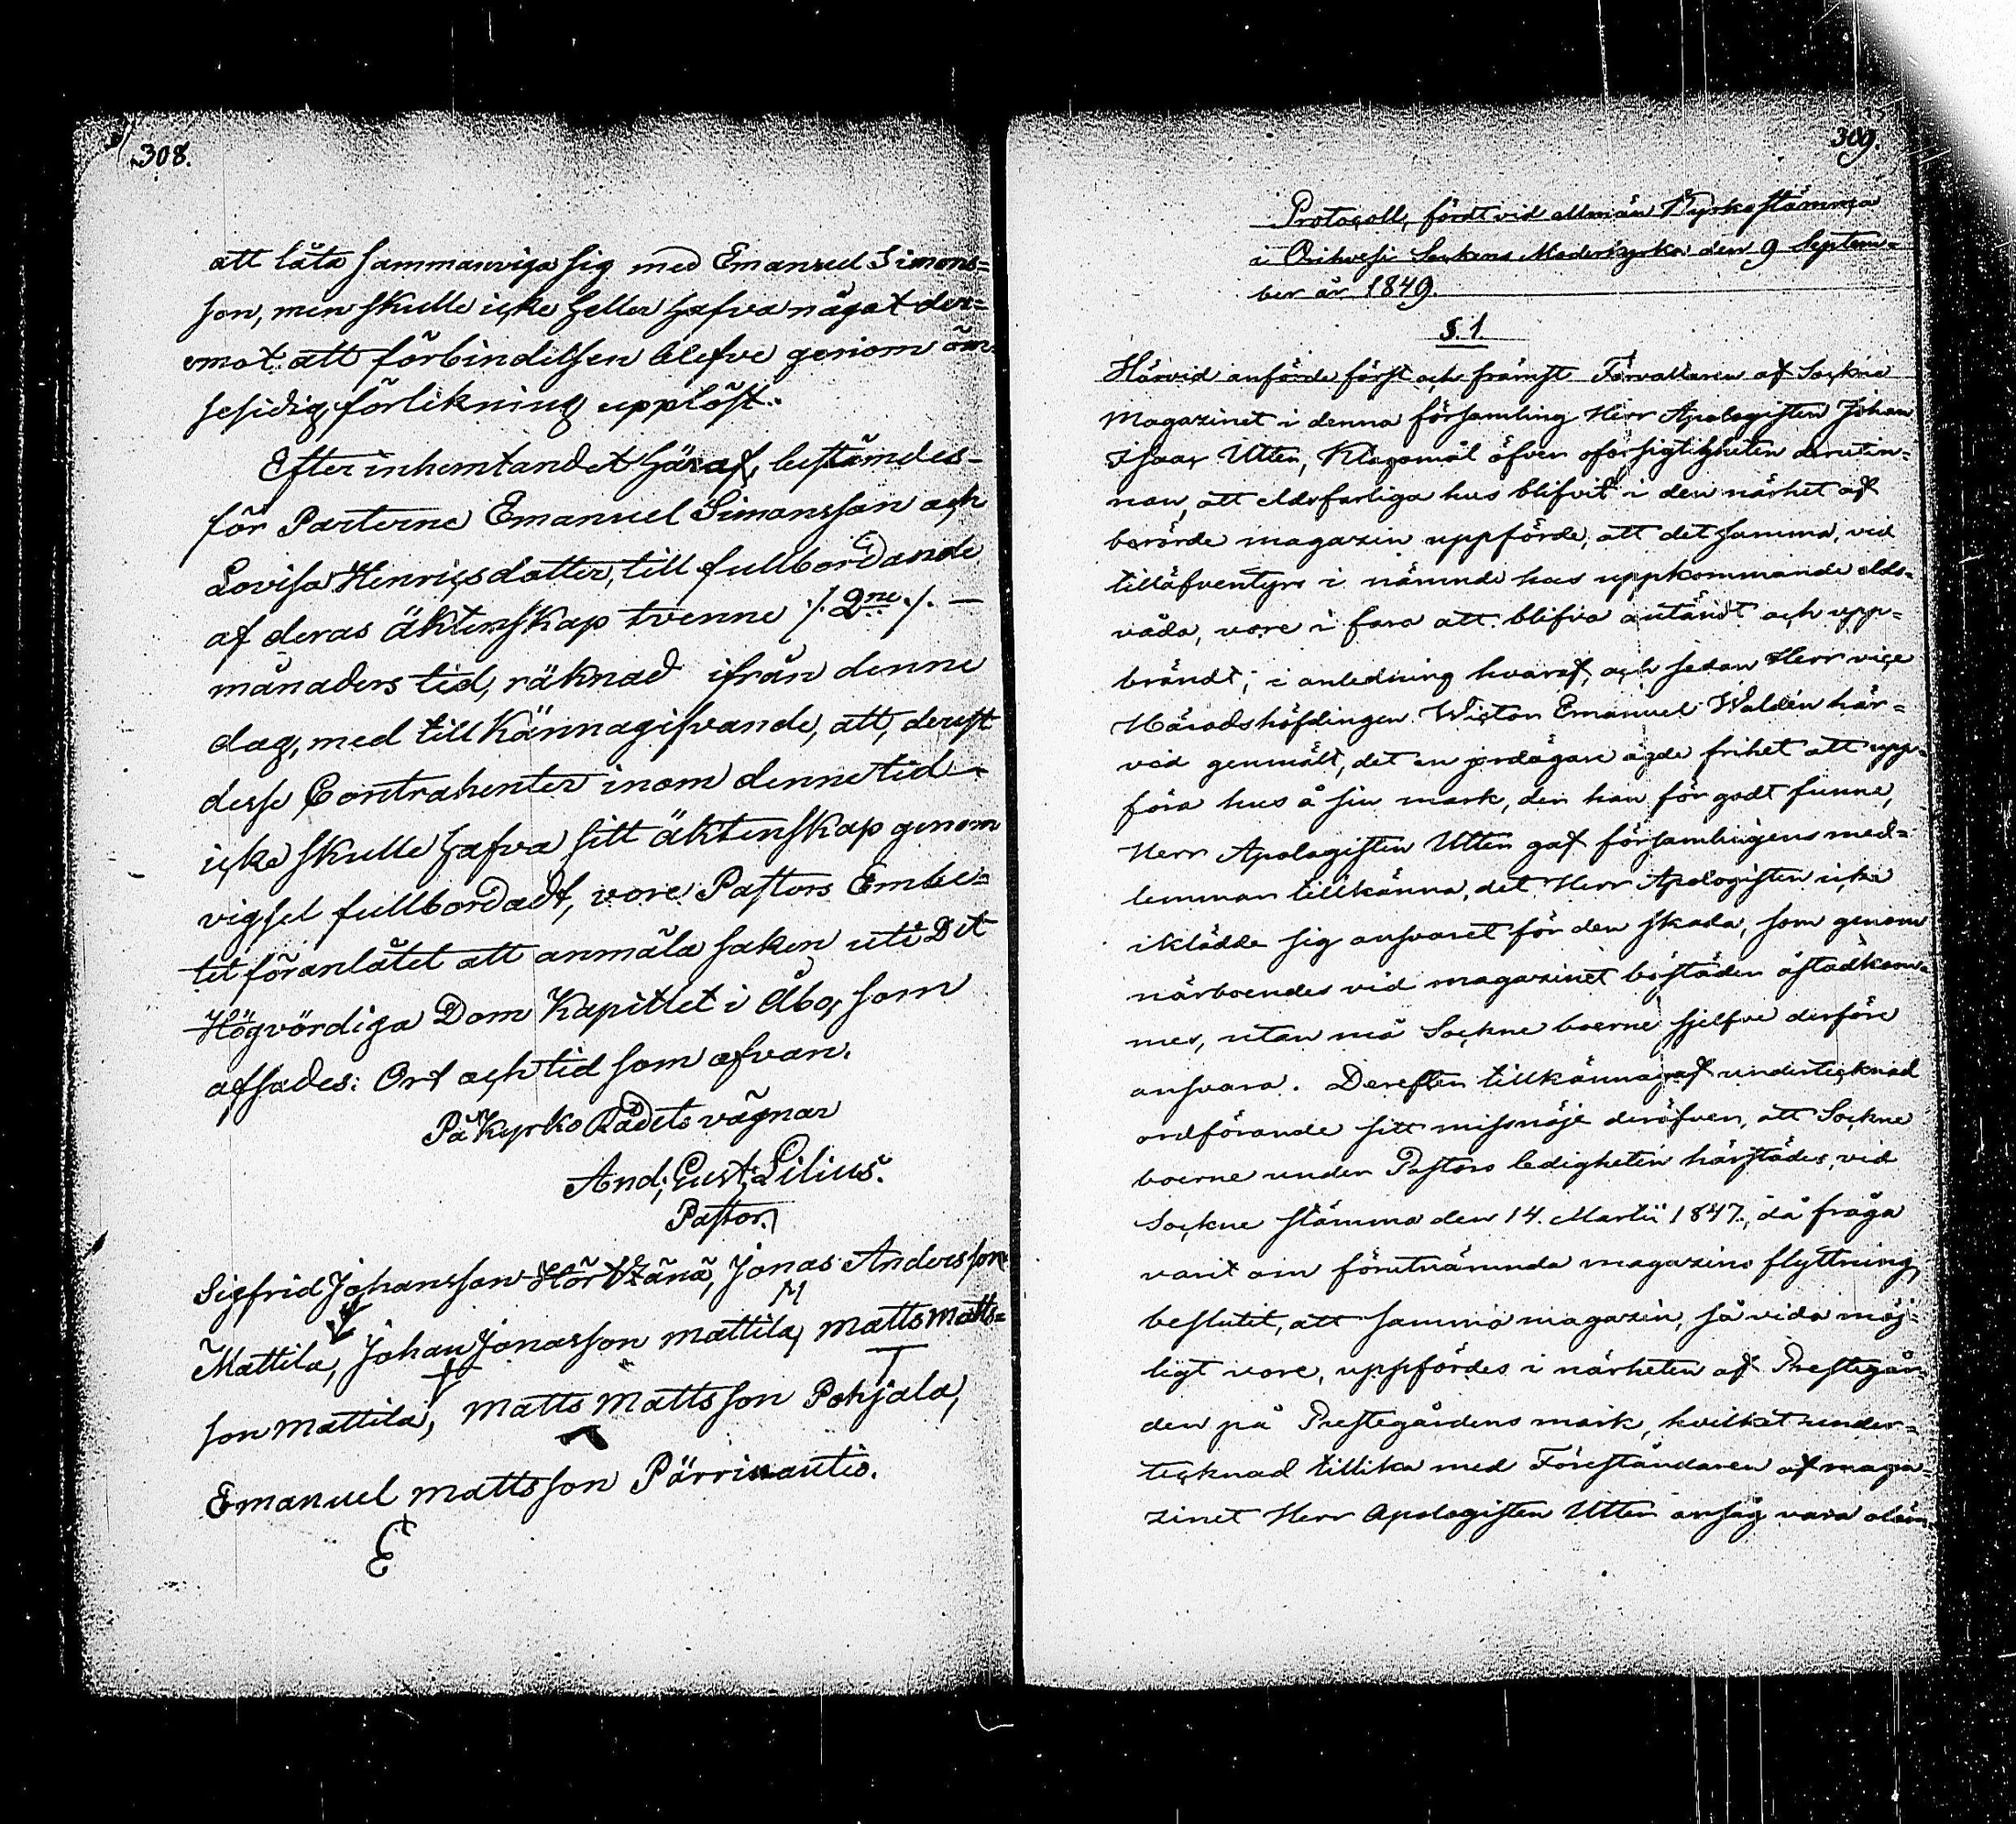 308.
att låta sammanviga sig med Emanuel Simons=
son, men skulle icke heller hafva något der=
emot att förbindelsen blefve genom öm=
sesidig förlikning upplöst.
Efter inhemtandet häraf, bestämdes=
för Parterne Emanuel Simonsson och
Lovisa Henricsdotter, till fullbordande
af deras äktenskap tvenne /. 2ne ./. —
månaders tid, räknad ifrån denne
dag, med tillkännagifvande, att, derest
desse Contrahenter inom denne tid
icke skulle hafva sitt äktenskap genom
vigsel fullbordadt, vore Pastors Embe=
tet föranlåtet att anmäla saken uti Det
Högvördiga Dom Kapitlet i Åbo, som
afsades: Ort och tid som ofvan.
På Kyrko Rådets vägnar
And: Gust: Lilius.
Pastor.
Sigfrid Johansson Jonas Andersson
M
Mattila, Johan Jonasson Mattila, Matts Matts=
son Mattila, Matts Mattsson Pohjala,
Emanuel Mattsson
E
309.
Protocoll, fördt vid allmän Kyrkostämma
i Orihvesi Sockens Moderkyrka den 9 Septem=
ber år 1849.
§. 1.
Härvid anförde först och främst Förvaltaren af Sockne
Magazinet i denna församling Herr Apologisten Johan
Isaac Utter, Klagomål öfver oförsigtigheten derutin=
nan, att eldsfarliga hus blifvit i den närhet af
berörde magazin uppförde, att det samma, vid
tilläfventyrs i nämnde hus uppkommande elds=
våda, vore i fara att blifva antändt och upp=
brändt; i anledning hvaraf, och sedan Herr vice
Häradshöfdingen Wictor Emanuel Waldén här=
vid genmält, det en jordägare ägde frihet att upp=
föra hus å sin mark, der han för godt funne,
Herr Apologisten Utter gaf församlingens med=
lemmar tillkänna, det Herr Apologisten icke
iklädde sig ansvaret för den skada, som genom
närboendes vid magazinet bostäder åstadkom=
mes, utan må Sockne boerne sjelfve derföre
ansvara. Derefter tillkännagaf undertecknad
ordförande sitt missnöje deröfver, att Sockne
boerne under Pastors ledigheten härstädes, vid
Sockne stämma den 14. Martii 1847., då fråga
varit om förutnämnda magazins flyttning,
beslutit, att samma magazin, så vida möj=
ligt vore, uppfördes i närheten af Prestegår=
den på Prestegårdens mark, hvilket under=
tecknad tillika med Föreståndaren af maga=
zinet Herr Apologisten Utter ansåg vara oläm=